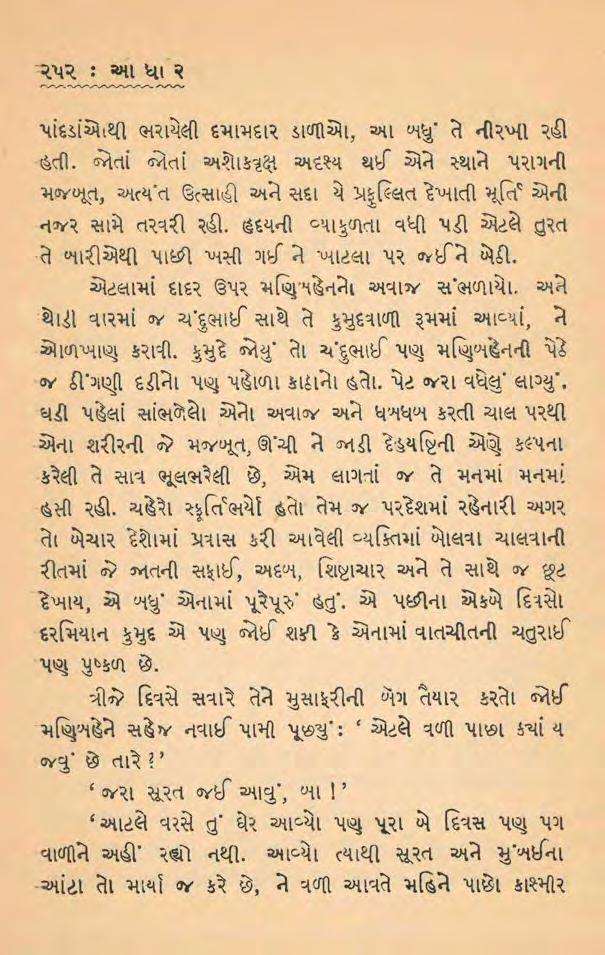 ૨૫૨ : આ ધા ર
પાંદડાંઓથી ભરાયેલી દમામદાર ડાળીઓ, આ બધું તે નીરખી રહી
હતી. જોતાં જોતાં અશોકવૃક્ષ અદૃશ્ય થઈ એને સ્થાને પરાગની
મજબૂત, અત્યંત ઉત્સાહી અને સદા યે પ્રફુલ્લિત દેખાતી મૂર્તિ એની
નજર સામે તરવરી રહી. હૃદયની વ્યાકુળતા વધી પડી એટલે તુરત
તે બારીએથી પાછી ખસી ગઈ ને ખાટલા પર જઈને બેઠી.
એટલામાં દાદર ઉપર મણિબહેનનો અવાજ સંભળાયો. અને
થોડી વારમાં જ ચંદુભાઈ સાથે તે કુમુદવાળી રૂમમાં આવ્યાં, ને
ઓળખાણ કરાવી. કુમુદે જોયું તો ચંદુભાઈ પણ મણિબહેનની પેઠે
જ ઠીંગણી દડીનો પણ પહોળા કાઠાનો હતો. પેટ જરા વધેલું લાગ્યું.
ઘડી પહેલાં સાંભળેલો એનો અવાજ અને ધબધબ કરતી ચાલ પરથી
એના શરીરની જે મજબૂત, ઊંચી ને જાડી દેહયષ્ટિની એણે કલ્પના
કરેલી તે સાવ ભૂલભરેલી છે, એમ લાગતાં જ તે મનમાં મનમાં
હસી રહી. ચહેરો સ્ફૂર્તિભર્યો હતો તેમ જ પરદેશમાં રહેનારી અગર
તો બેચાર દેશોમાં પ્રવાસ કરી આવેલી વ્યક્તિમાં બોલવા ચાલવાની
રીતમાં જે જાતની સફાઈ, અદબ, શિષ્ટાચાર અને તે સાથે જ છૂટ
દેખાય, એ બધું એનામાં પૂરેપૂરું હતું. એ પછીના એકબે દિવસો
દરમિયાન કુમુદ એ પણ જોઈ શકી કે એનામાં વાતચીતની ચતુરાઈ
પણ પુષ્કળ છે.
ત્રીજે દિવસે સવારે તેને મુસાફરીની બૅગ તૈયાર કરતો જોઈ
મણિબહેને સહેજ નવાઈ પામી પૂછ્યું: ‘ એટલે વળી પાછા ક્યાં ય
જવું છે તારે ?’
‘ જરા સૂરત જઈ આવું, બા !’
‘ આટલે વરસે તું ઘેર આવ્યો પણ પૂરા બે દિવસ પણ પગ
વાળીને અહીં રહ્યો નથી. આવ્યો ત્યાથી સૂરત અને મુંબઈના
આંટા તો માર્યા જ કરે છે, ને વળી આવતે મહિને પાછો કાશ્મીર